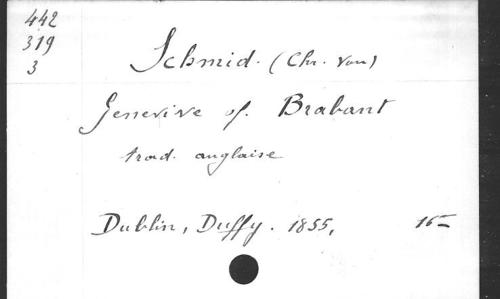 442
319
3
Schmid. (Chr. von)
Genevive of. Brabant
trad. anglaise
Dublin, Duffy. 1855, 16-